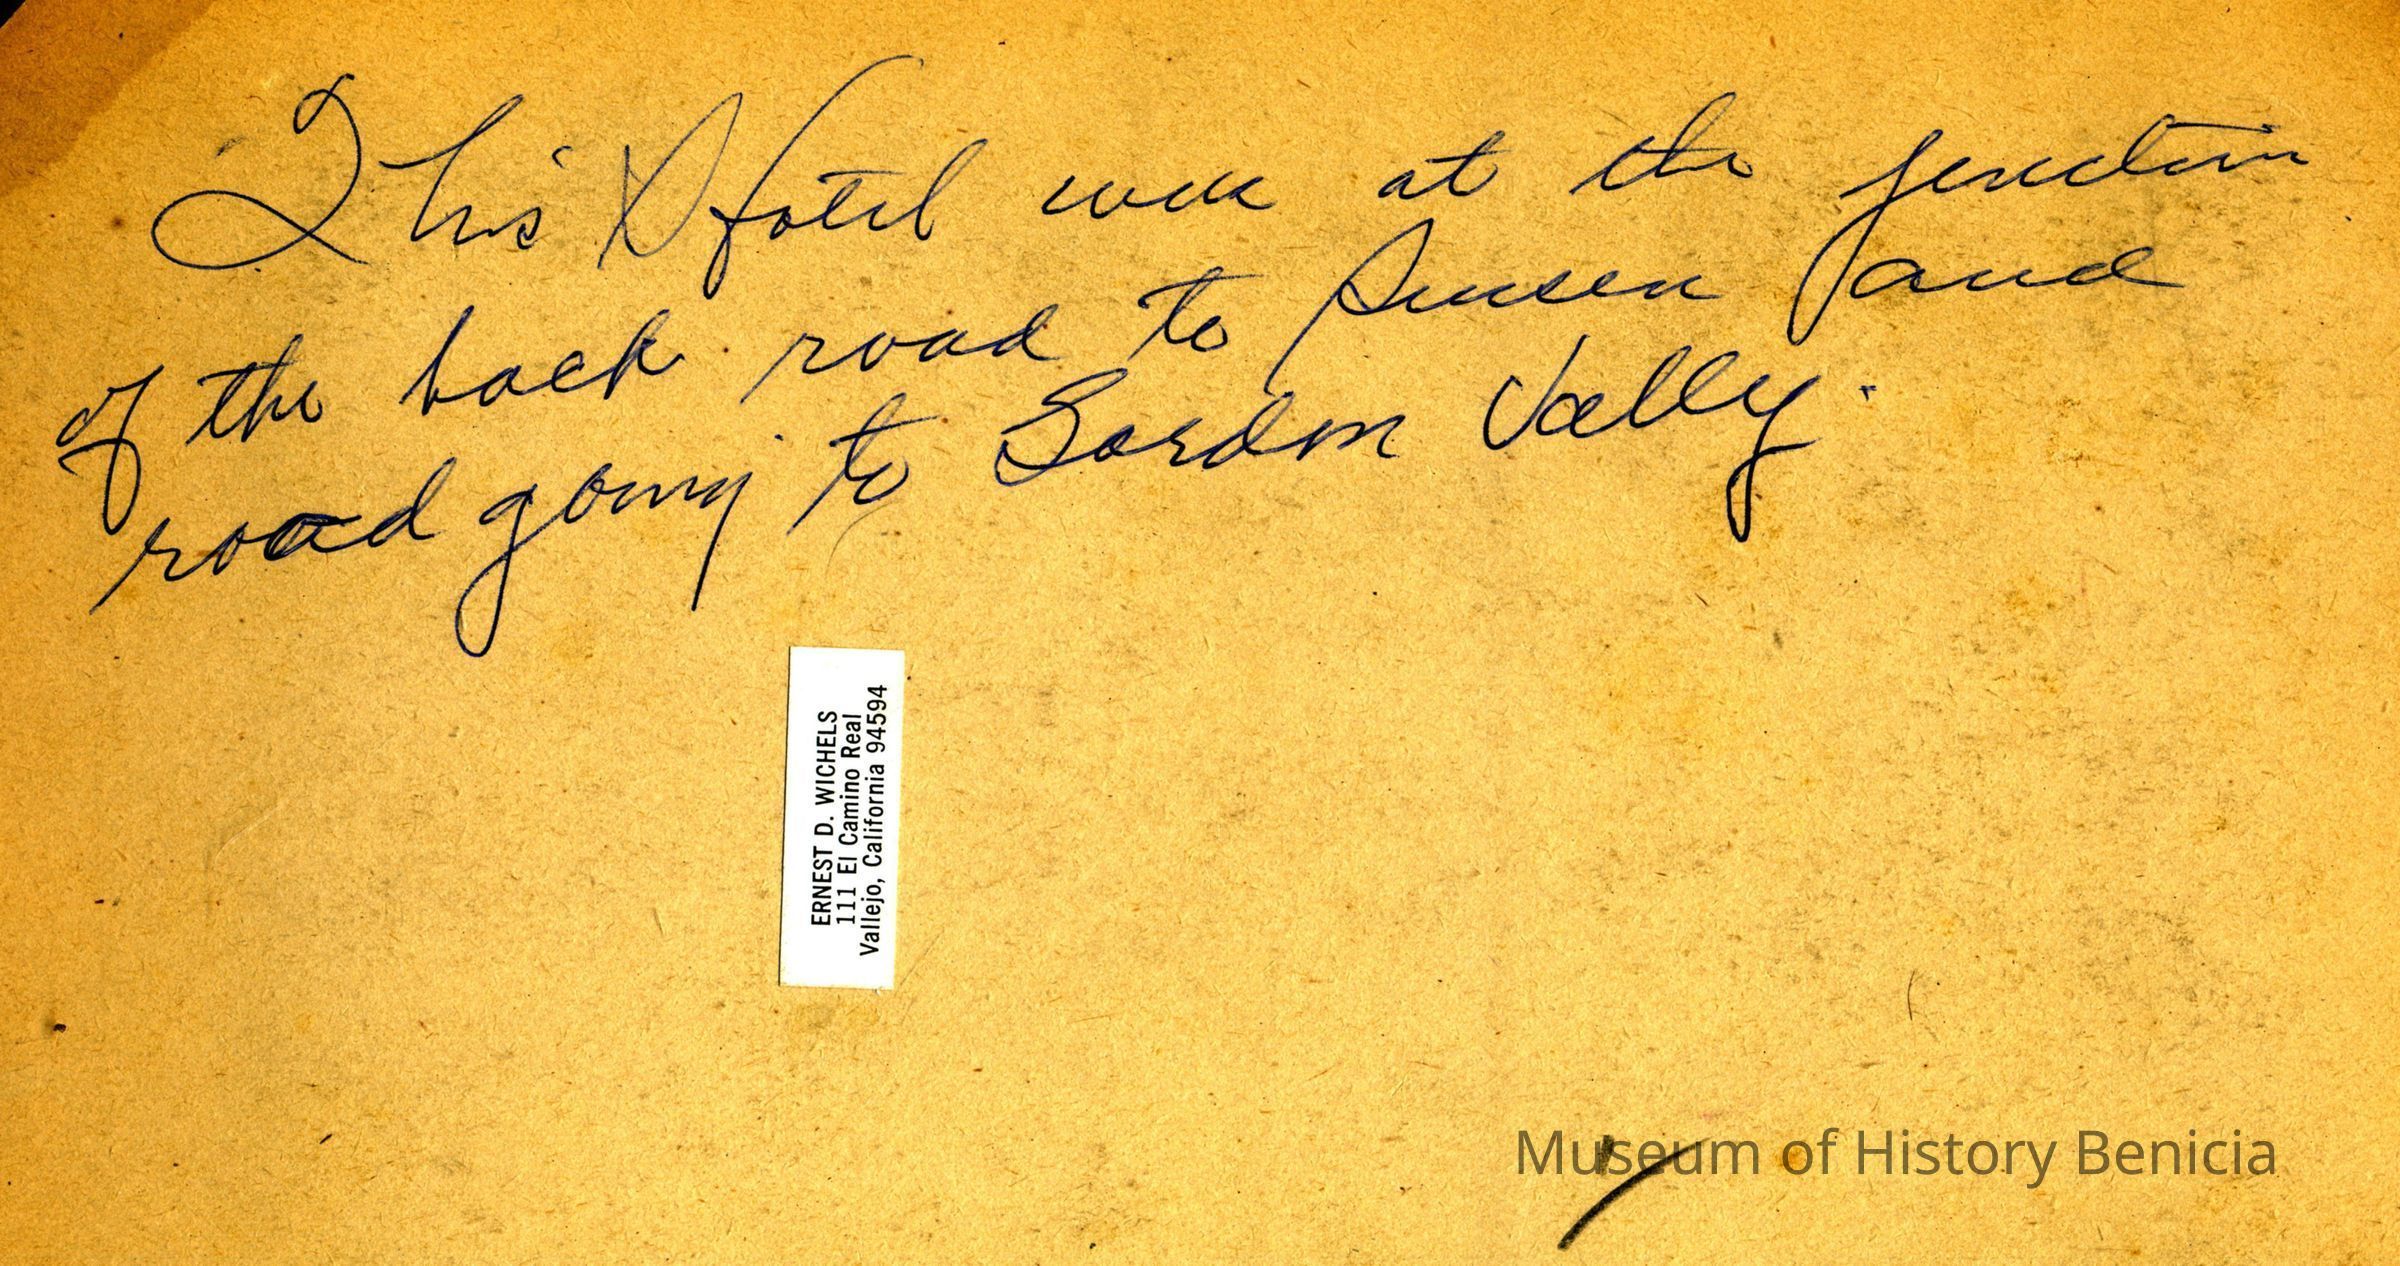 This Hotel was at the junction
of the back road to Suisun and
road going to Gordon Vally.
ERNEST D. WICHELS
111 El Camino Real
Vallejo, California 94594
Museum of History Benicia